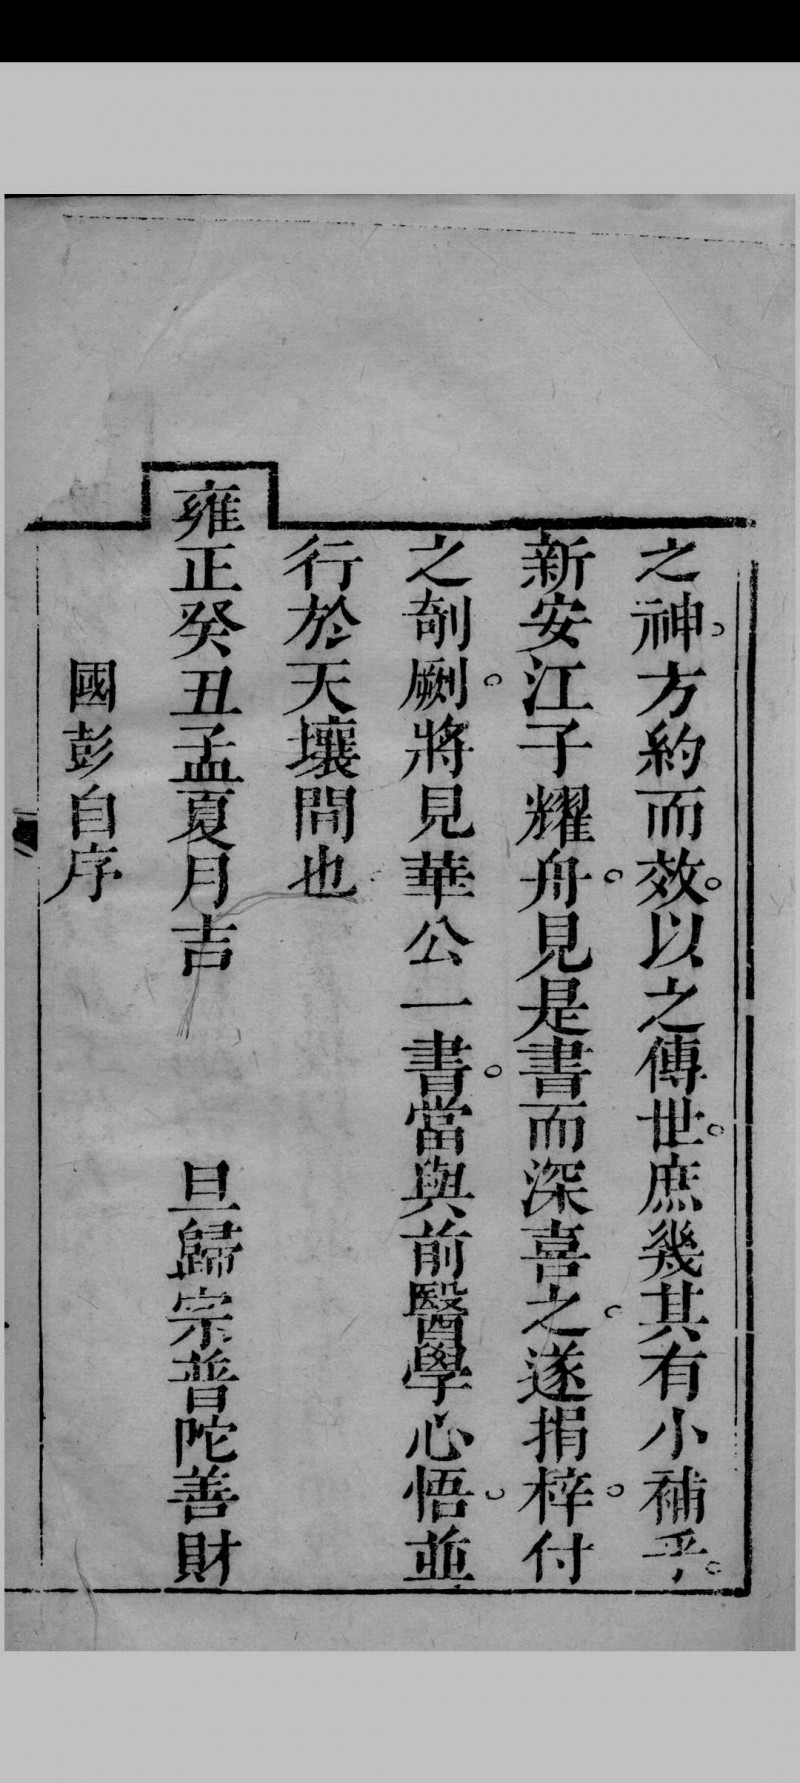 之神。方約而效。以之傳世。庶幾其有小補乎。
新安江子耀舟。見是書而深喜之。遂捐梓。付
之剞劂。將見華公一書。當與前醫學心悟。並
行於天壤間也
雍正癸丑孟夏月吉　旦歸宗普陀善財
國彭自序